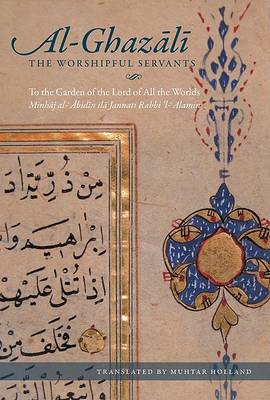 Al-Ghazālī
THE WORSHIPFUL SERVANTS
To the Garden of the Lord of All the Worlds
Minhāj al-‘Ābidīn ilā Jannati Rabbi ’l-‘Alamīn
مِنْ ذُرِّيَّةِ
اِبْرٰهِيمَ وَ
اِذَا تُتْلٰى عَلَيْهِمْ
فَخَلَفَ مِنْ
وَاتَّبَعُوا
TRANSLATED BY MUHTAR HOLLAND